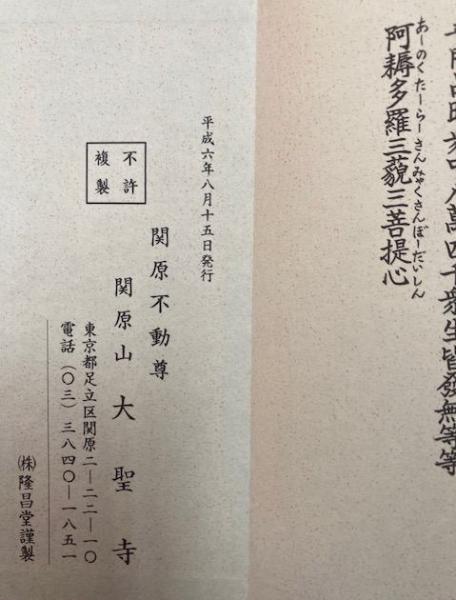 衆中八萬四千衆生皆發無等等
あーのくたーらーさんみゃくさんぼーだいしん
阿耨多羅三藐三菩提心
平成六年八月十五日発行
不許
複製
関原不動尊
関原山 大聖寺
東京都足立区関原二―二二―一〇
電話(〇三)三八四〇―一八五一
㈱隆昌堂謹製